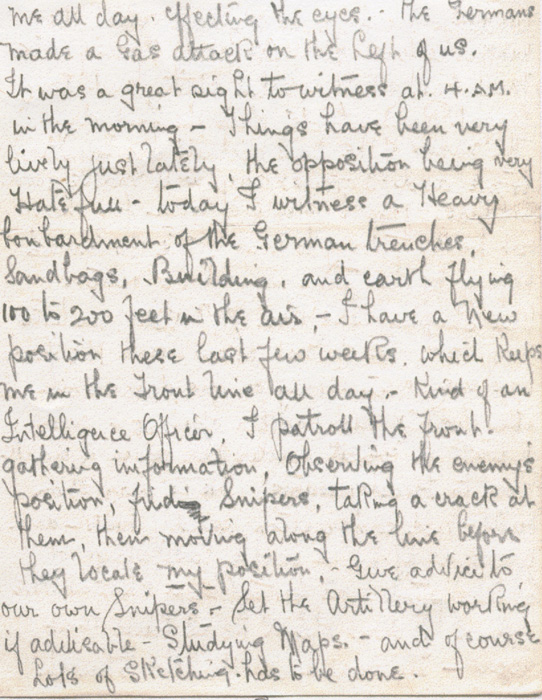 me all day. effecting the eyes. - the Germans
made a Gas attack on the Left of us.
It was a great sight to witness at. 4. A.M.
in the morning - Things have been very
lively just lately, the opposition being very
Hatefull - today I witness a Heavy
bonbardment of the German trenches,
Sandbags, Building, and earth flying
100 to 200 feet in the air, - I have a New
position these last few weeks. which Keeps
me in the Front line all day. - Kind of an
Intelligence Officer, I patroll the Front.
gathering information, Observing the enemy's
position, find Snipers, taking a crack at
them, then moving along the line before
they locate my position, - Give advice to
our own Snipers - Set the Artillery working
if adviseable - Studying Maps. - and of course
Lots of Sketching has to be done.